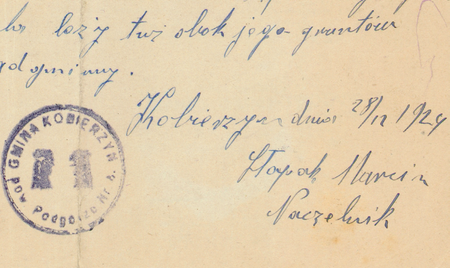 leży tuż obok jego gruntów
Kobierzyn dnia 28/II 1924
Słapak Marcin
Naczelnik
GMINA KOBIERZYN
pow. Podgórze Nr 4.